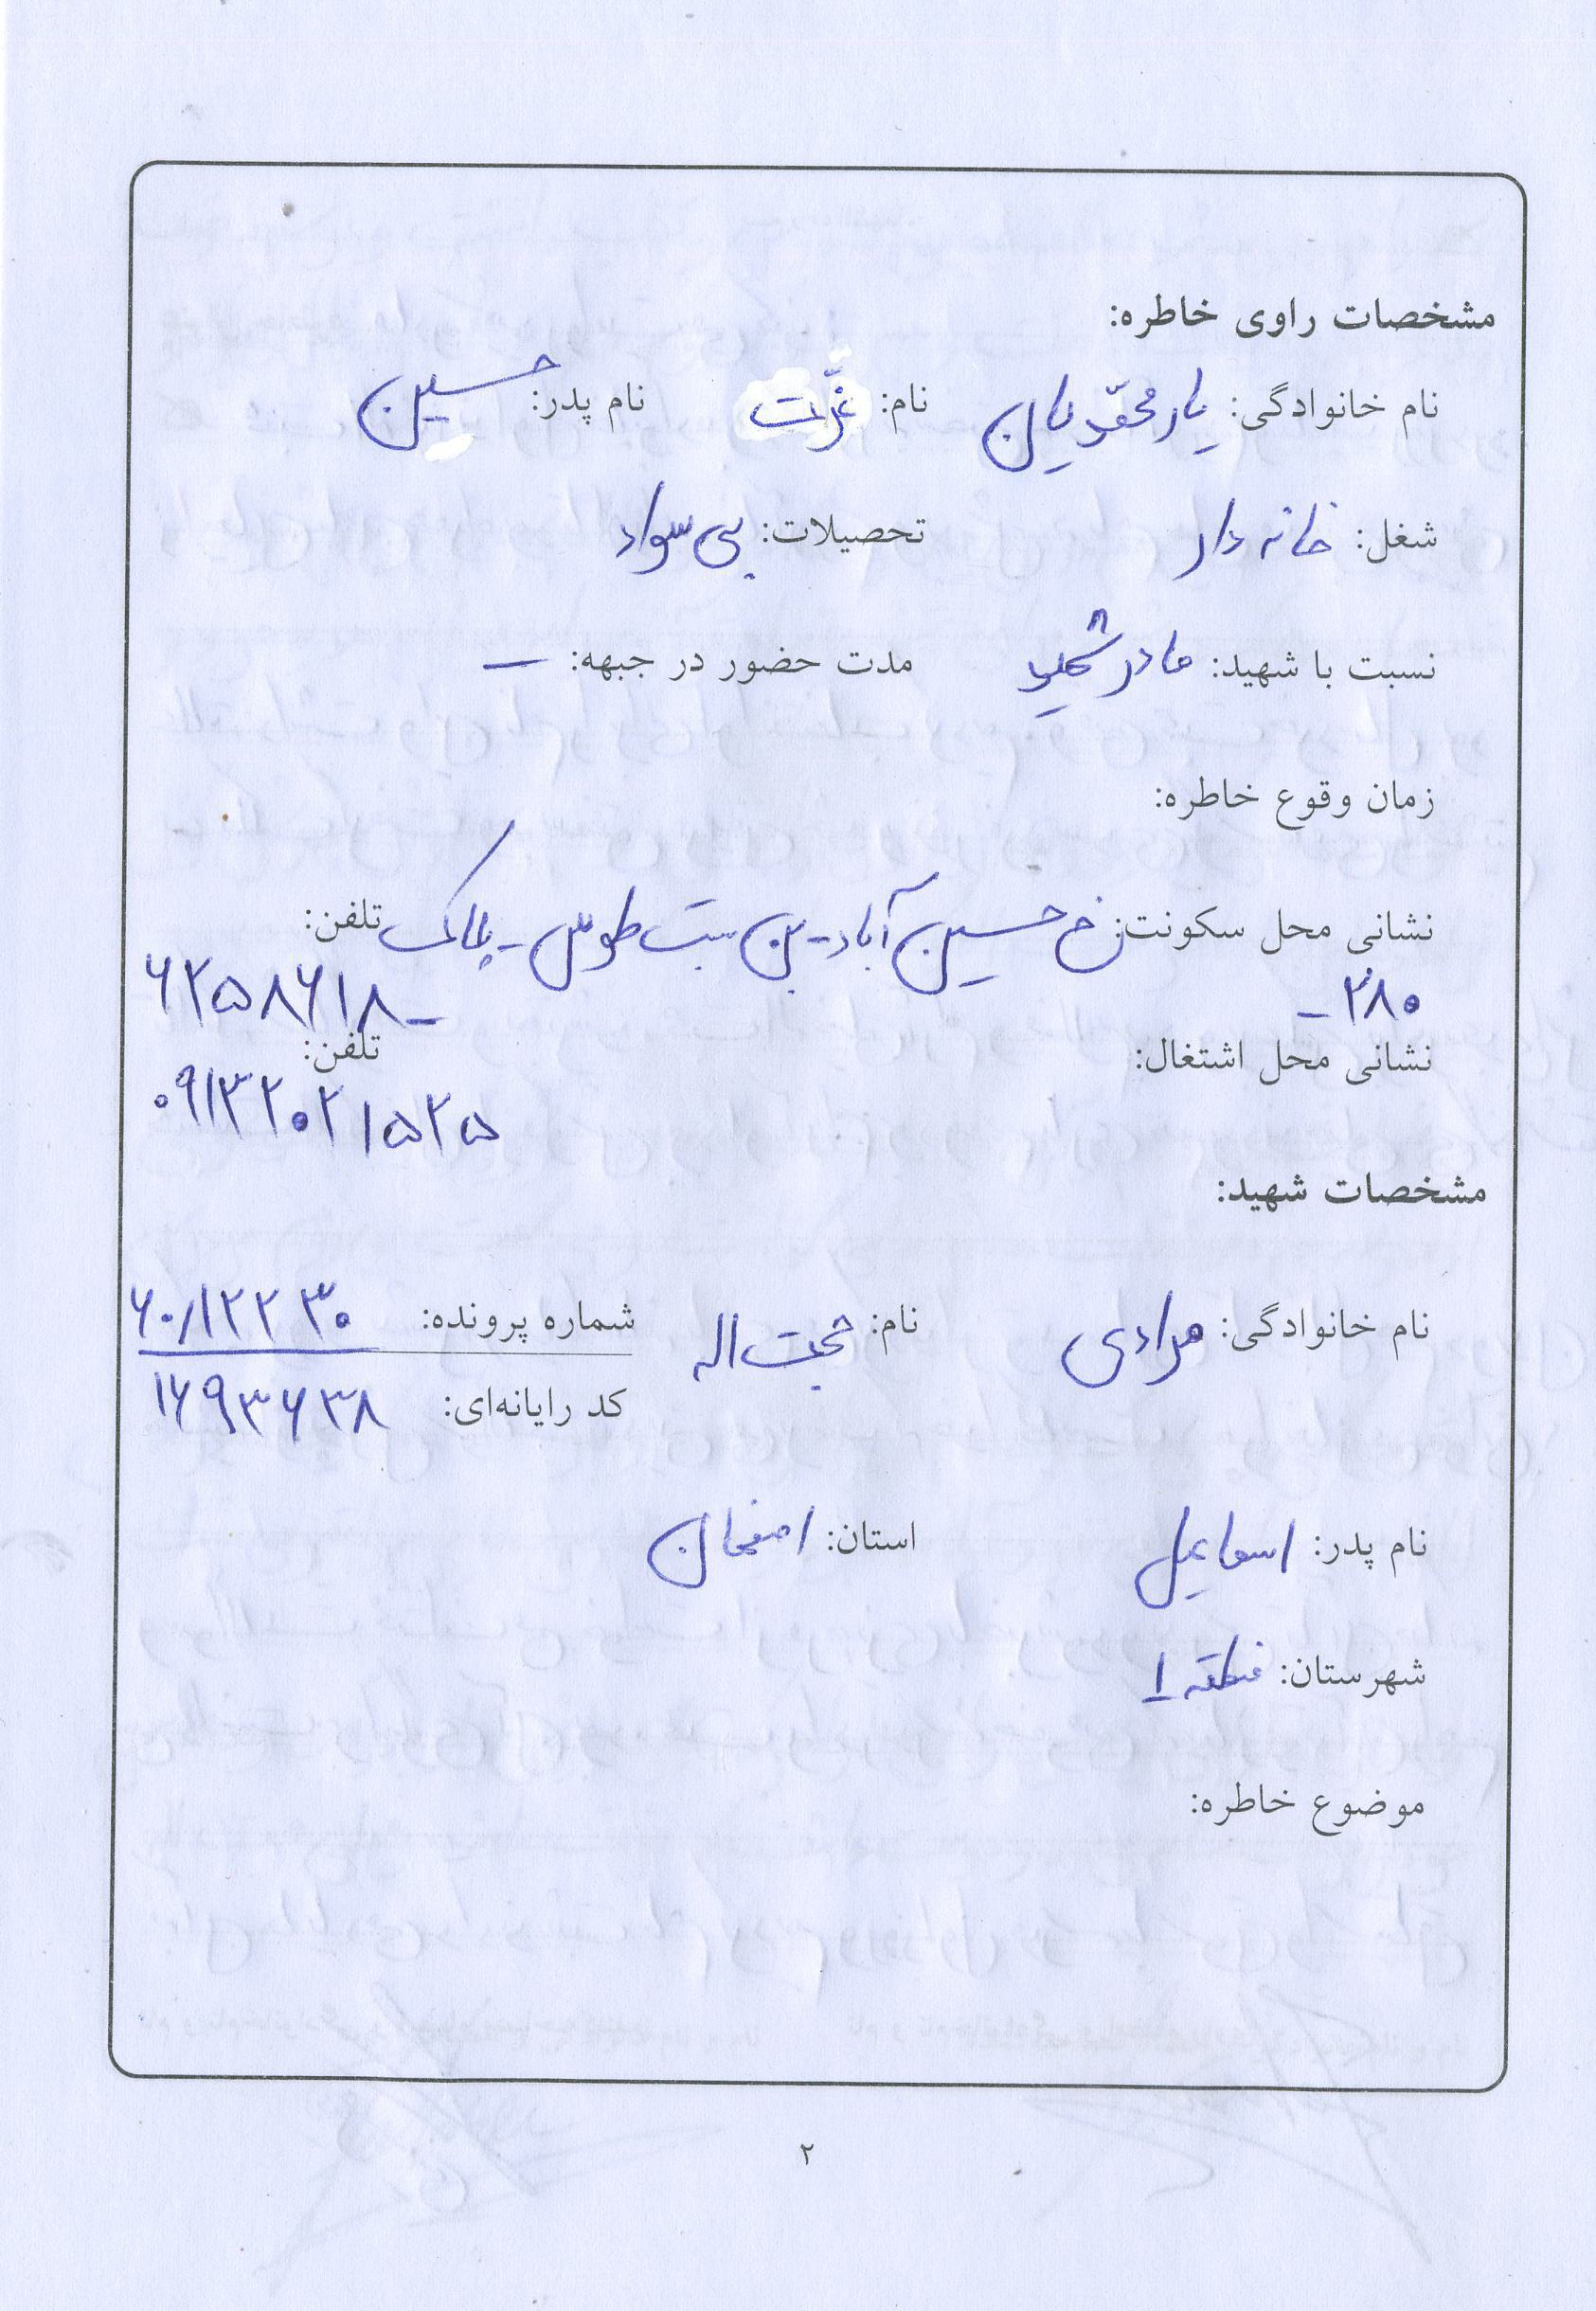 مشخصات راوی خاطره:
نام خانوادگی: یارمحمدیان نام: عزّت نام پدر: حسین
شغل: خانه دار تحصیلات: بی سواد
نسبت با شهید: مادر شهید مدت حضور در جبهه: —
زمان وقوع خاطره:
نشانی محل سکونت: خ حسین آباد - بن بست طوس - پلاک تلفن:
۲۸۰ - ۶۲۵۸۶۱۸ -
نشانی محل اشتغال: تلفن:
۰۹۱۳۲۰۲۱۵۲۵
مشخصات شهید:
نام خانوادگی: مرادی نام: حجت اله شماره پرونده: ۶۰/۱۲۲۳۰
کد رایانه‌ای: ۱۶۹۳۶۳۸
نام پدر: اسماعیل استان: اصفهان
شهرستان: منطقه ۱
موضوع خاطره:
۲